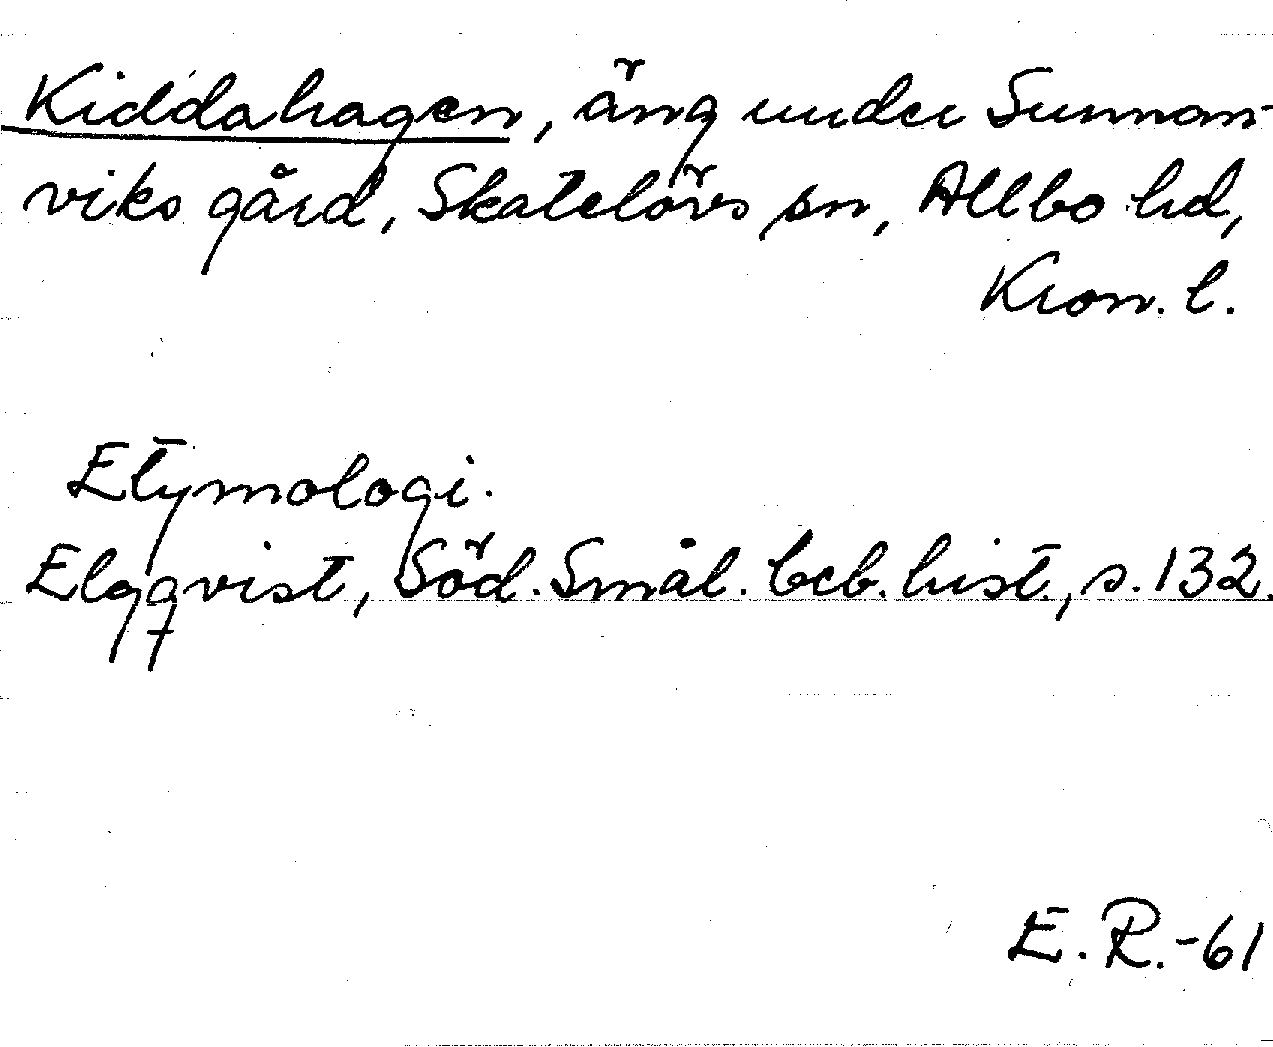 Kiddahagen, äng under Sunnan-
viks gård, Skatelövs sn, Allbo hd,
Kron. l.
Etymologi.
Elgqvist, Söd. Smål. beb. hist., s. 132.
E. R.-61